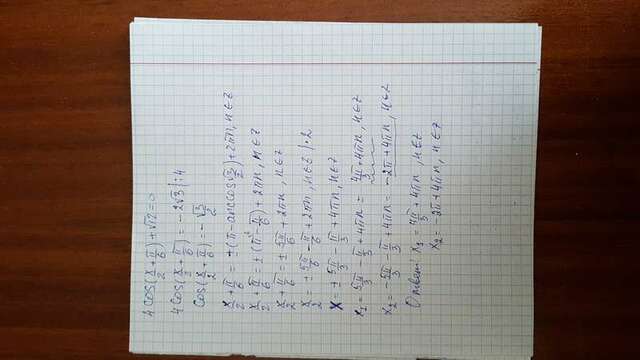 4 cos(x/2 + π/6) + √12 = 0
4 cos(x/2 + π/6) = -2√3 |:4
cos(x/2 + π/6) = -√3/2
x/2 + π/6 = ±(π - arccos √3/2) + 2πn, n∈Z
x/2 + π/6 = ±(π - π/6) + 2πn, n∈Z
x/2 + π/6 = ± 5π/6 + 2πn, n∈Z
x/2 = ± 5π/6 - π/6 + 2πn, n∈Z |·2
x ± 5π/3 - π/3 + 4πn, n∈Z
x₁ = 5π/3 - π/3 + 4πn = 4π/3 + 4πn, n∈Z
x₂ = -5π/3 - π/3 + 4πn = -2π + 4πn, n∈Z
Ответ: x₁ = 4π/3 + 4πn, n∈Z
x₂ = -2π + 4πn, n∈Z